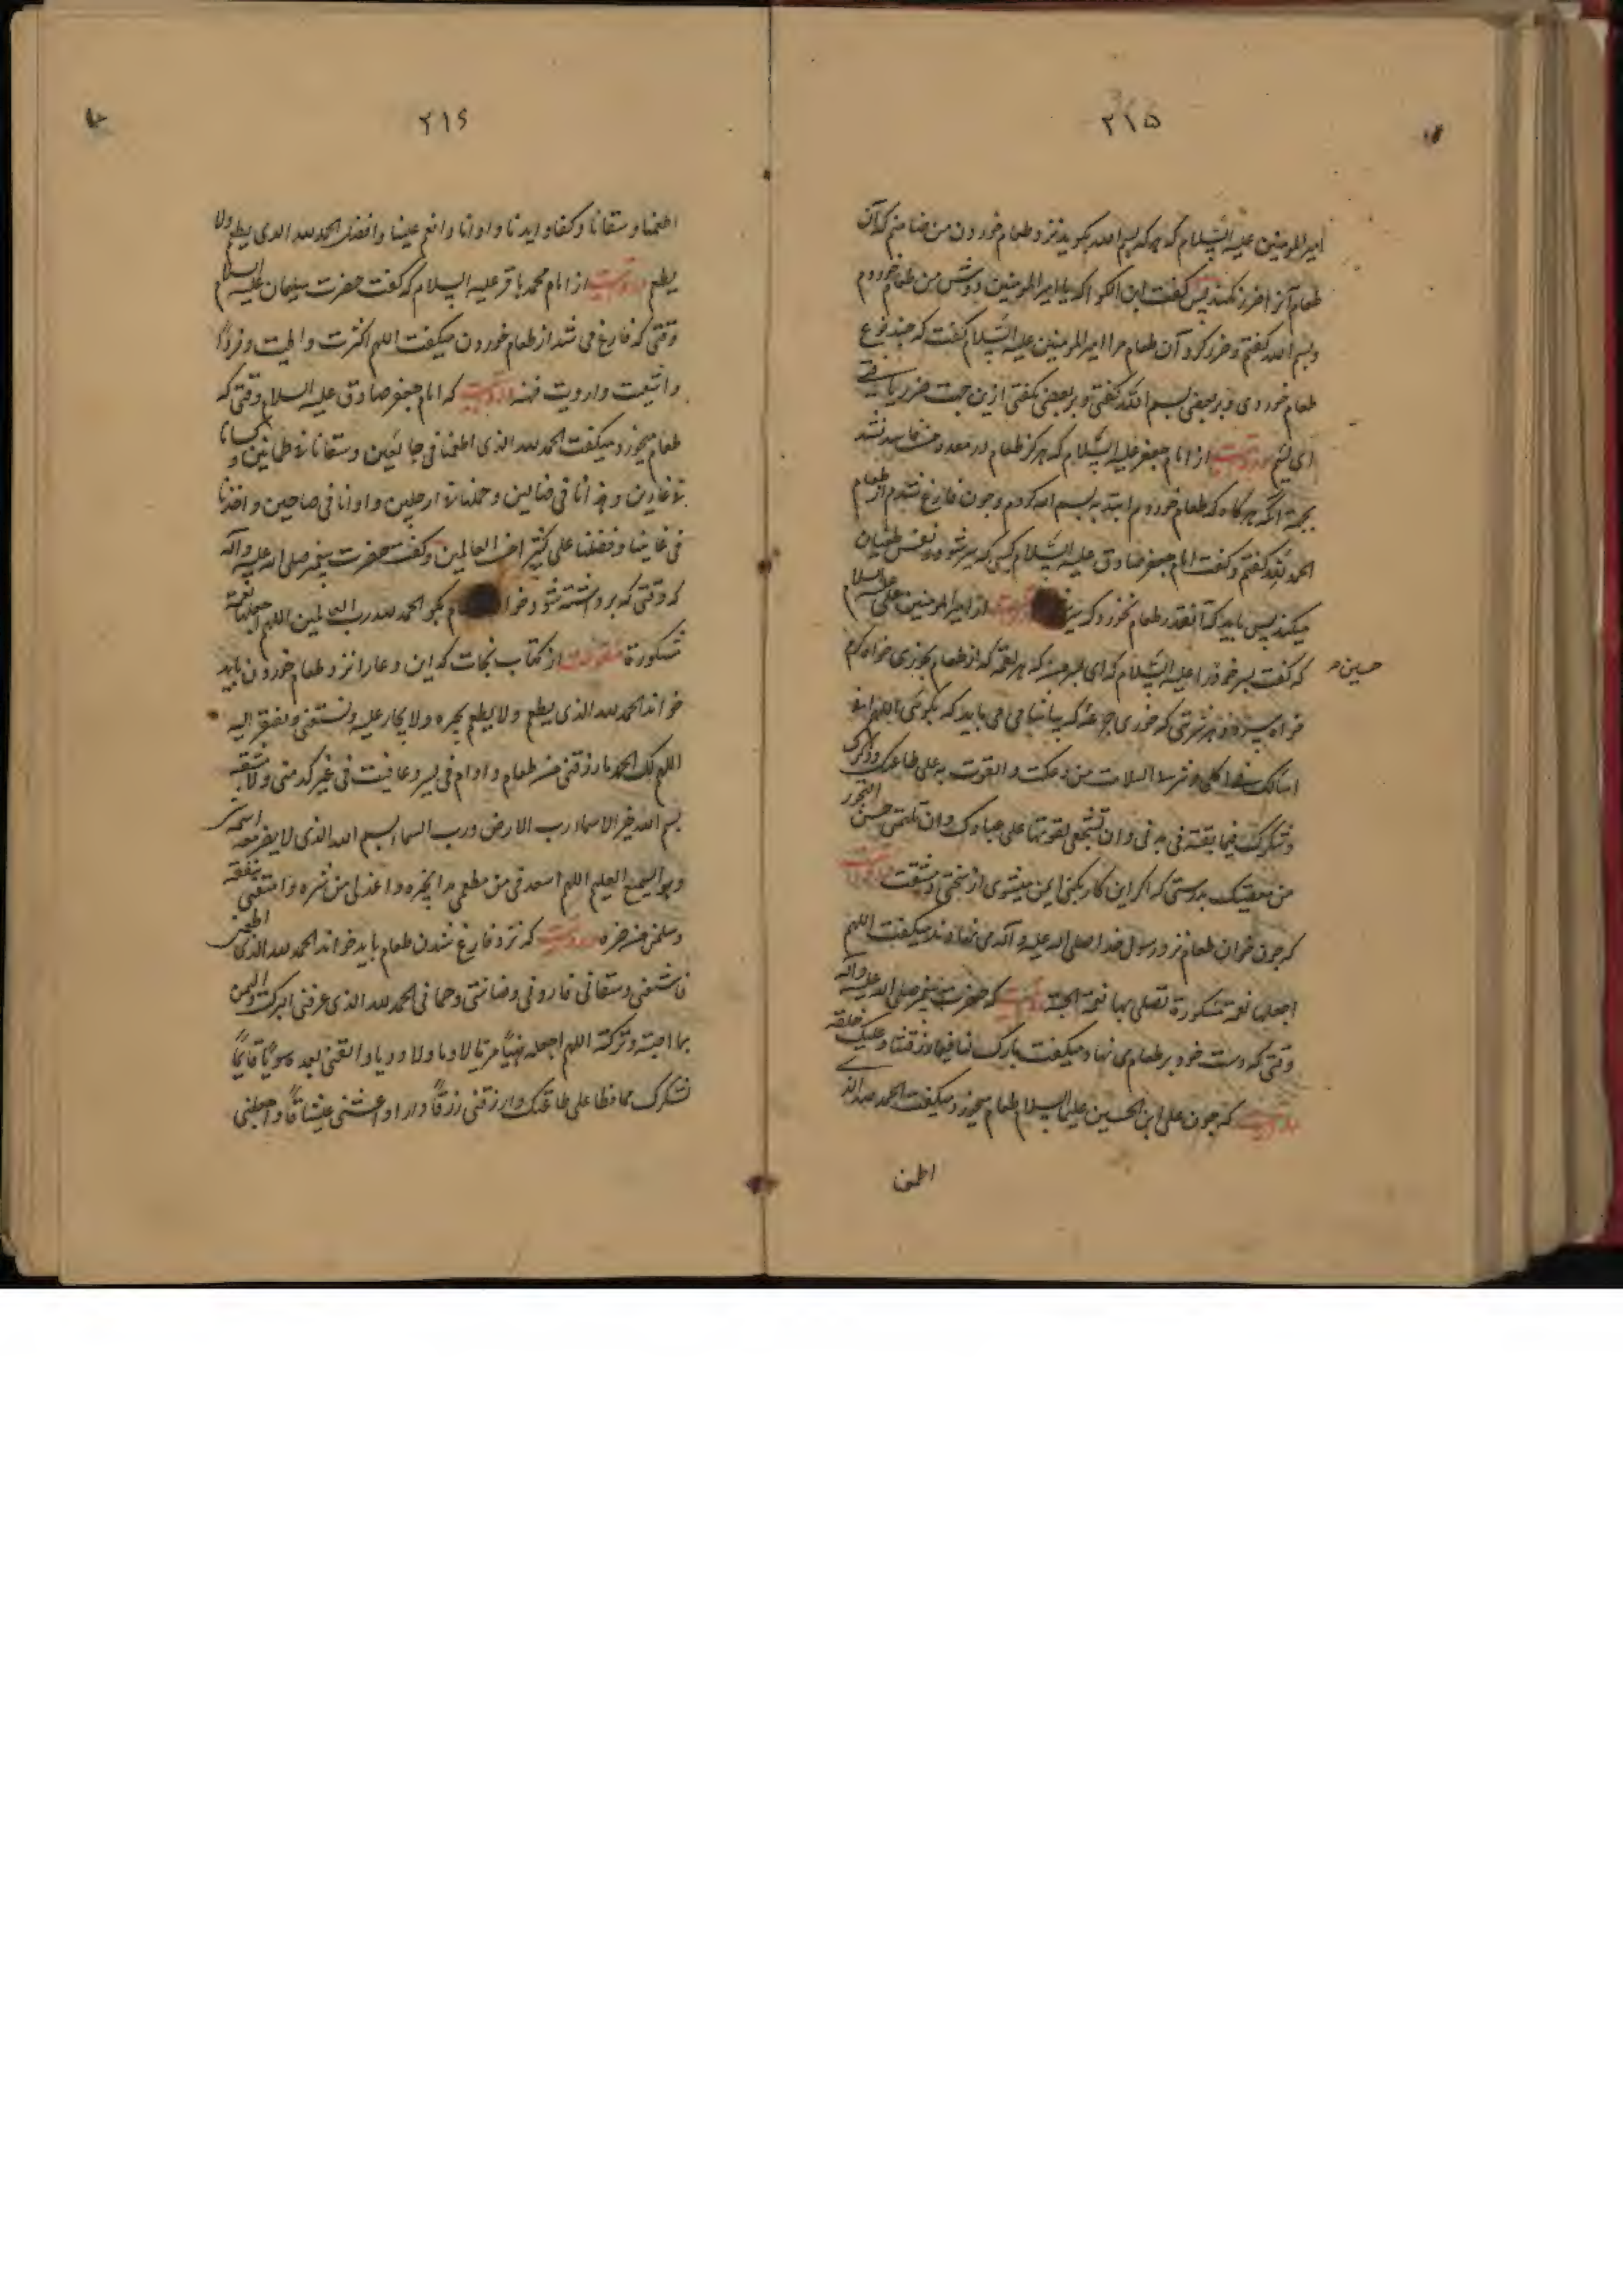 ۲۱۵
امیرالمومنین علیه السلام که هر که بسم الله بکوید نزد طعام خوردن من ضامنم که آن
طعام آنرا ضرر نکند پس کفت ابن الکوا که یا امیرالمومنین دوش من طعام خوردم
و بسم الله کفتم و ضرر کرد آن طعام مرا امیرالمومنین علیه السلام کفت که چند نوع
طعام خوردی و بر بعضی بسم الله کفتی و بر بعضی نکفتی ازین جهت ضرر یافتی
ای لئیم مرویست از امام جعفر علیه السلام که هرکز طعام در معده من فاسد نشد
بجهة آنکه هرکاه که طعام خوردم ابتدا به بسم الله کردم و چون فارغ شدم از طعام
الحمد لله کفتم و کفت امام جعفر صادق علیه السلام کسی که سیر شود نفس طغیان
میکند پس باید که آنقدر طعام نخورد که سیر از امیرالمومنین علی علیه السلام
که کفت پسر خود را علیه السلام که ای که هر لقمه که از طعام بخوری خواه کرم
حسین
خواه سرد و هر شربتی که خوری می باید که بکوئی اللهم انی
اسالک فی اکلی و شربی السلامت من وعکت و القوت به علی طاعتک و ذکرک
و شکرک فیما بقیته فی بدنی و ان تشجعنی بقوتها علی عبادتک و ان تلهمنی حسن التحرز
من معصیتک بدرستی که اکر این کار بکنی ایمن میشوی از سختی و مشقت مرویست
که چون خوان طعام نزد رسول خدا صلی الله علیه و آله می نهادند میکفت اللهم
اجعلها نعمة مشکورة تصل بها نعمة الجنة مرویست که حضرت پیغمبر صلی الله علیه و آله
وقتی که دست خود بر طعام می نهاد میکفت بارک لنا فیما رزقتنا و علیک خلفه
مرویست که چون علی ابن الحسین علیهما السلام طعام میخورد میکفت الحمد لله الذی
اطعمنا
۲۱۶
اطعمنا و سقانا و کفانا و ایدنا و اوانا و انعم علینا و افضل الحمد لله الذی یطعم ولا
یطعم مرویست از امام محمد باقر علیه السلام که کفت حضرت سلیمان علیه السلام
وقتی که فارغ می شد از طعام خوردن میکفت اللهم اکثرت و اطبت و فزدنا
و اشبعت و ارویت فهنه مرویست که امام جعفر صادق علیه السلام وقتی که
طعام میخورد میکفت الحمد لله الذی اطعمنا فی جائعین و سقانا فی ظمانین و کسانا
فی عارین و هدانا فی ضالین و حملنا فی راجلین و اوانا فی ضاحین و اخدمنا
فی عانینا و فضلنا علی کثیر من العالمین و کفت حضرت پیغمبر صلی الله علیه و آله
که وقتی که برداشته شود خوا م بکو الحمد لله رب العالمین اللهم اجعلها نعمة
مشکورة منقولست از کتاب نجات که این دعا را نزد طعام خوردن باید
خواند الحمد لله الذی یطعم ولا یطعم یجیر ولا یجار علیه و یستغنی و یفتقر الیه
اللهم لک الحمد ما رزقتنی من طعام و ادام فی یسر و عافیت فی غیر کد منی ولا مشقة
بسم الله خیر الاسماء رب الارض و رب السماء بسم الله الذی لا یضر مع اسمه
وهو السمیع العلیم اللهم اسعدنی من مطعمی هذا بخیره و اعذنی من شره و امتعنی بنفعه
و سلمنی من ضره مرویست که نزد فارغ شدن طعام باید خواند الحمد لله الذی اطعمنی
فاشبعنی و سقانی فاروانی و صاننی و حمانی الحمد لله الذی عرفنی البرکت و الیمن
بما اصبته و ترکته اللهم اجعله هنیئا مریئا لا وبیا ولا دویا و ابقنی بعده سویا قائما
بشکرک محافظا علی طاعتک و ارزقنی رزقا دارا و اعشنی عیشا قارا و اجعلنی